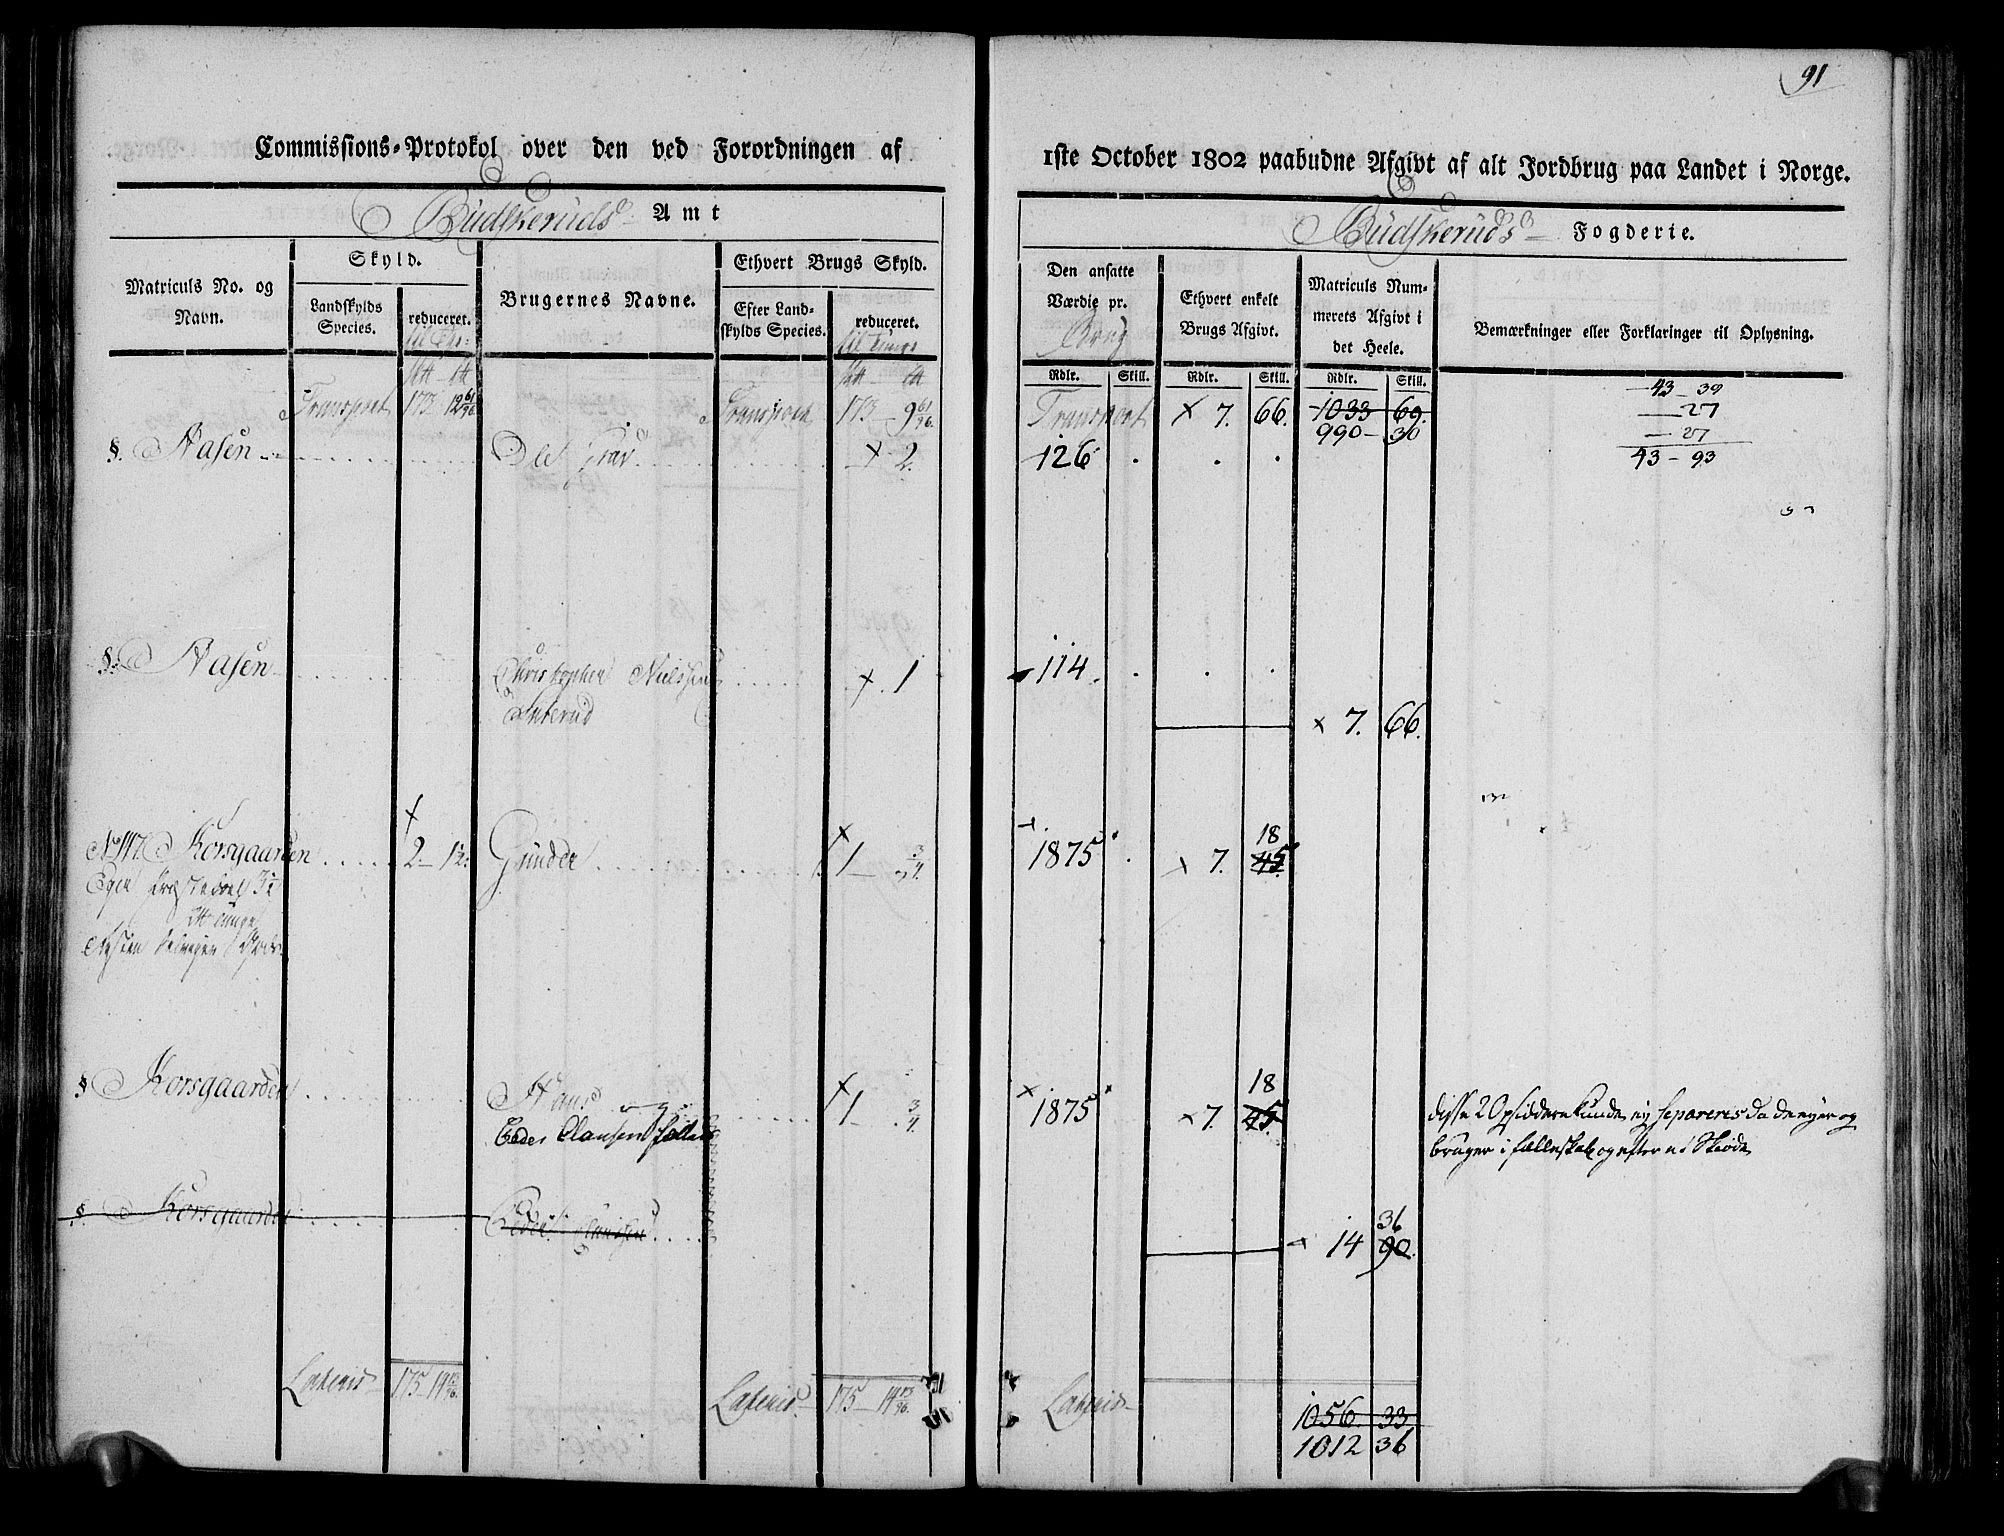 91
Commissions-Protokol over den ved Forordningen af
1ste October 1802 paabudne Afgivt af alt Jordbrug paa Landet i Norge.
Budskeruds Amt
Budskeruds Fogderie.
Matriculs No. og Navn.
Skyld.
Landskylds Species.
reduceret.
Brugernes Navne.
Ethvert Brugs Skyld.
Efter Landskylds Species.
reduceret.
til Tunge
Den ansatte Værdie pr.
Brug
Ethvert enkelt Brugs Afgivt.
Matriculs Nummerets Afgivt i det Heele.
Bemærkninger eller Forklaringer til Oplysning.
Rdlr. Skill. Rdlr. Skill. Rdlr. Skill.
Transport 173 - 12 61/96 Transport 173 - 9 61/96 Transport × 7. 66. 1033 69.
990 - 30
43 - 39
- 27
- 27
43 - 93
§. Aasen Ole × 2. 126 . . .
§. Aasen Christopher Nielsen × . 1 114 . . .
× 7. 66.
No 117. Korsgaarden 2 - 1 1/2 Gunder 1 - 3/4 1875 . × 7. 18 45
§ Korsgaarden Hans og 1 - 3/4 1875 × 7. 18 45
Peder Clausen fælles
disse 2 Opsiddere kunde ey separeres da de eyer og
bruger i fælleskab og efter et Skiøde
§. Korsgaarden Peder Clausen
14 36 90
Lateris 175 - 14 13/96 Lateris 175 - 14 13/96 Lateris 1056. 33
1012 36